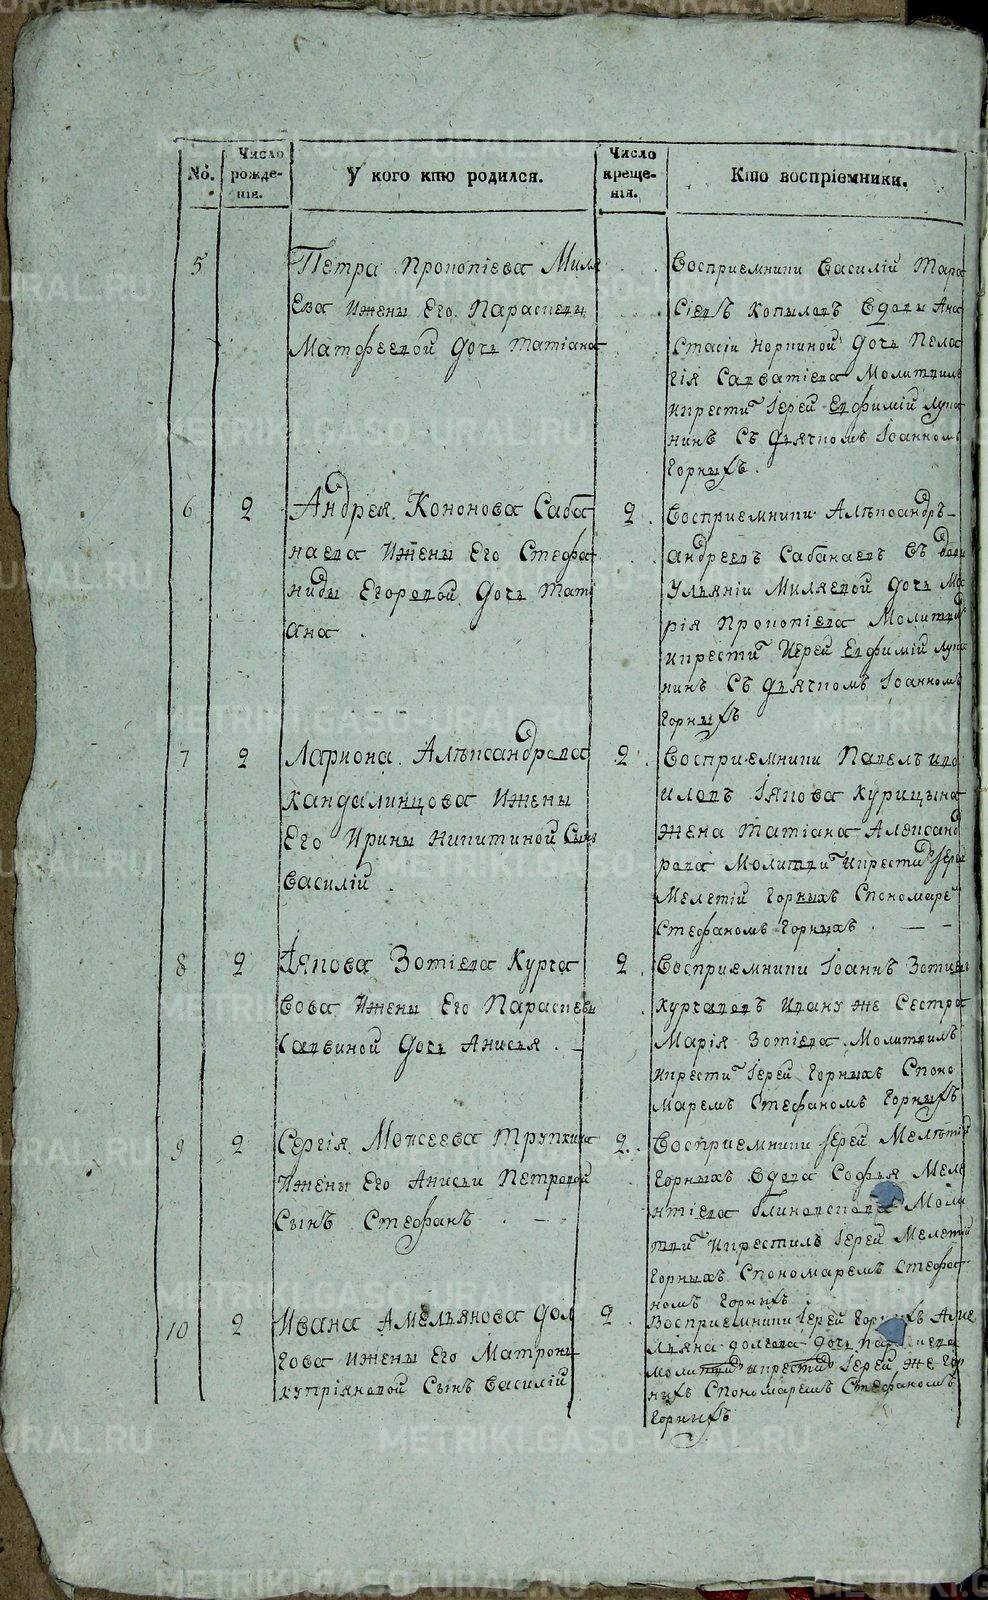 No.
Число рожде-нія.
У кого кто родился.
Число креще-нія.
Кто воспріемники.
5
Петра Прокопіева Миля
ева Ижены Его Параскевы
Матфеевой Дочь Татіана
Восприемники Василій Тара
сіевъ Копыловъ Вдовы Ана
стасіи Норкиной Дочь Пела
гія Савватіева Молитвилъ
Икрестилъ Іерей Евфимій Лука
нинъ Съ Дьячкомъ Іоанномъ
Горныхъ.
6
2
Андрея Кононова Саба
наева Ижены Его Стефа
ниды Егоровой Дочь Таті
ана
2.
Восприемники Алѣксандръ
андреевъ Сабанаевъ
Ульяніи Миляевой Дочь Ма
рія Прокопіева Молитви
Икрести Иерей Евфимій Лука
нинъ Съ Дьячкомъ Іоанномъ
Горныхъ
7
2
Лариона Алѣксандрова
Кандалинцова Ижены
Его Ирины Никитиной Сынъ
Василій
2.
Восприемники Павелъ
Іякова Курицына
жена Татіана Александ
рова Молитви Икрести Іерей
Мелетій Горныхъ Спономаре
Стефаномъ Горныхъ.
8
2
Іякова Зотіева Курга
вова Ижены Его Параскевы
Саввиной Дочь Анисья.
2.
Восприемники Іоаннъ Зотиевъ
Кургавовъ Ивану же Сестра
Марія Зотіева Молитвилъ
Икрести Іерей Горныхъ Споно
маремъ Стефаномъ Горныхъ
9
2
Сергія Моисеева Трупхина
Ижены Его Анисьи Петровой
Сынъ Стефанъ.
2.
Восприемники Іерей Мелѣтій
Горныхъ Вдова Софья Меле
нтіева Блиновскова Моли
тви Икрестилъ Іерей Мелетій
Горныхъ Спономаремъ Стефа
номъ Горныхъ.
10
2
Ивана Амельянова Дол
гова Ижены Его Матроны
Купріяновой Сынъ Василій
2.
Восприемники Іерей Горныхъ Аме
льяна Долгова Дочь
Молитви Икрести Іерей же Гор
ныхъ Спономаремъ Стефаномъ
Горныхъ
METRIKI.GASO-URAL.RU